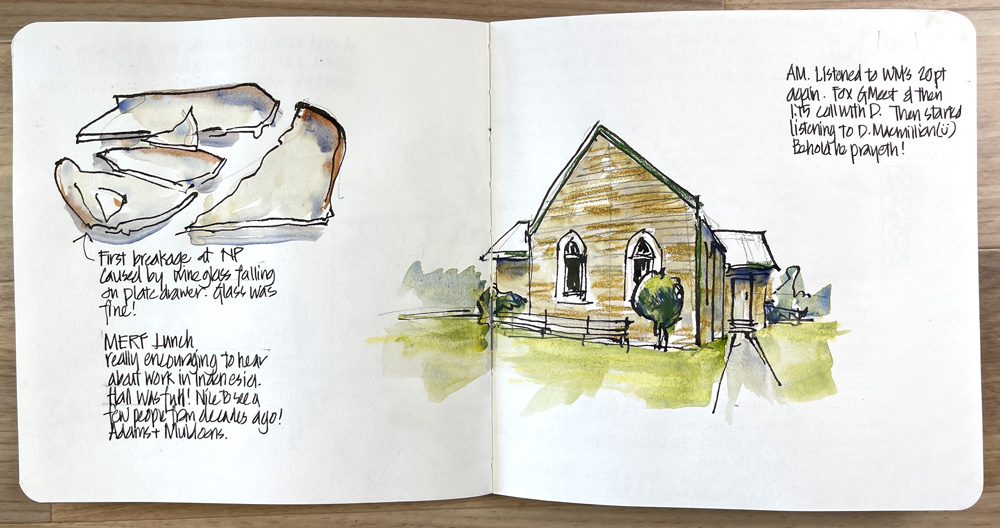 First breakage at NP
caused by wineglass falling
on plate drawer. Glass was
fine!
MERF Lunch
really encouraging to hear
about work in Indonesia.
Hall was full! Nice to see a
few people from decades ago!
Adams + Muldoons.
AM. Listened to WM's 20pt
again. Fox GMeet & then
1.75 call with D. Then started
listening to D. Macmillian (ü)
Behold he prayeth!